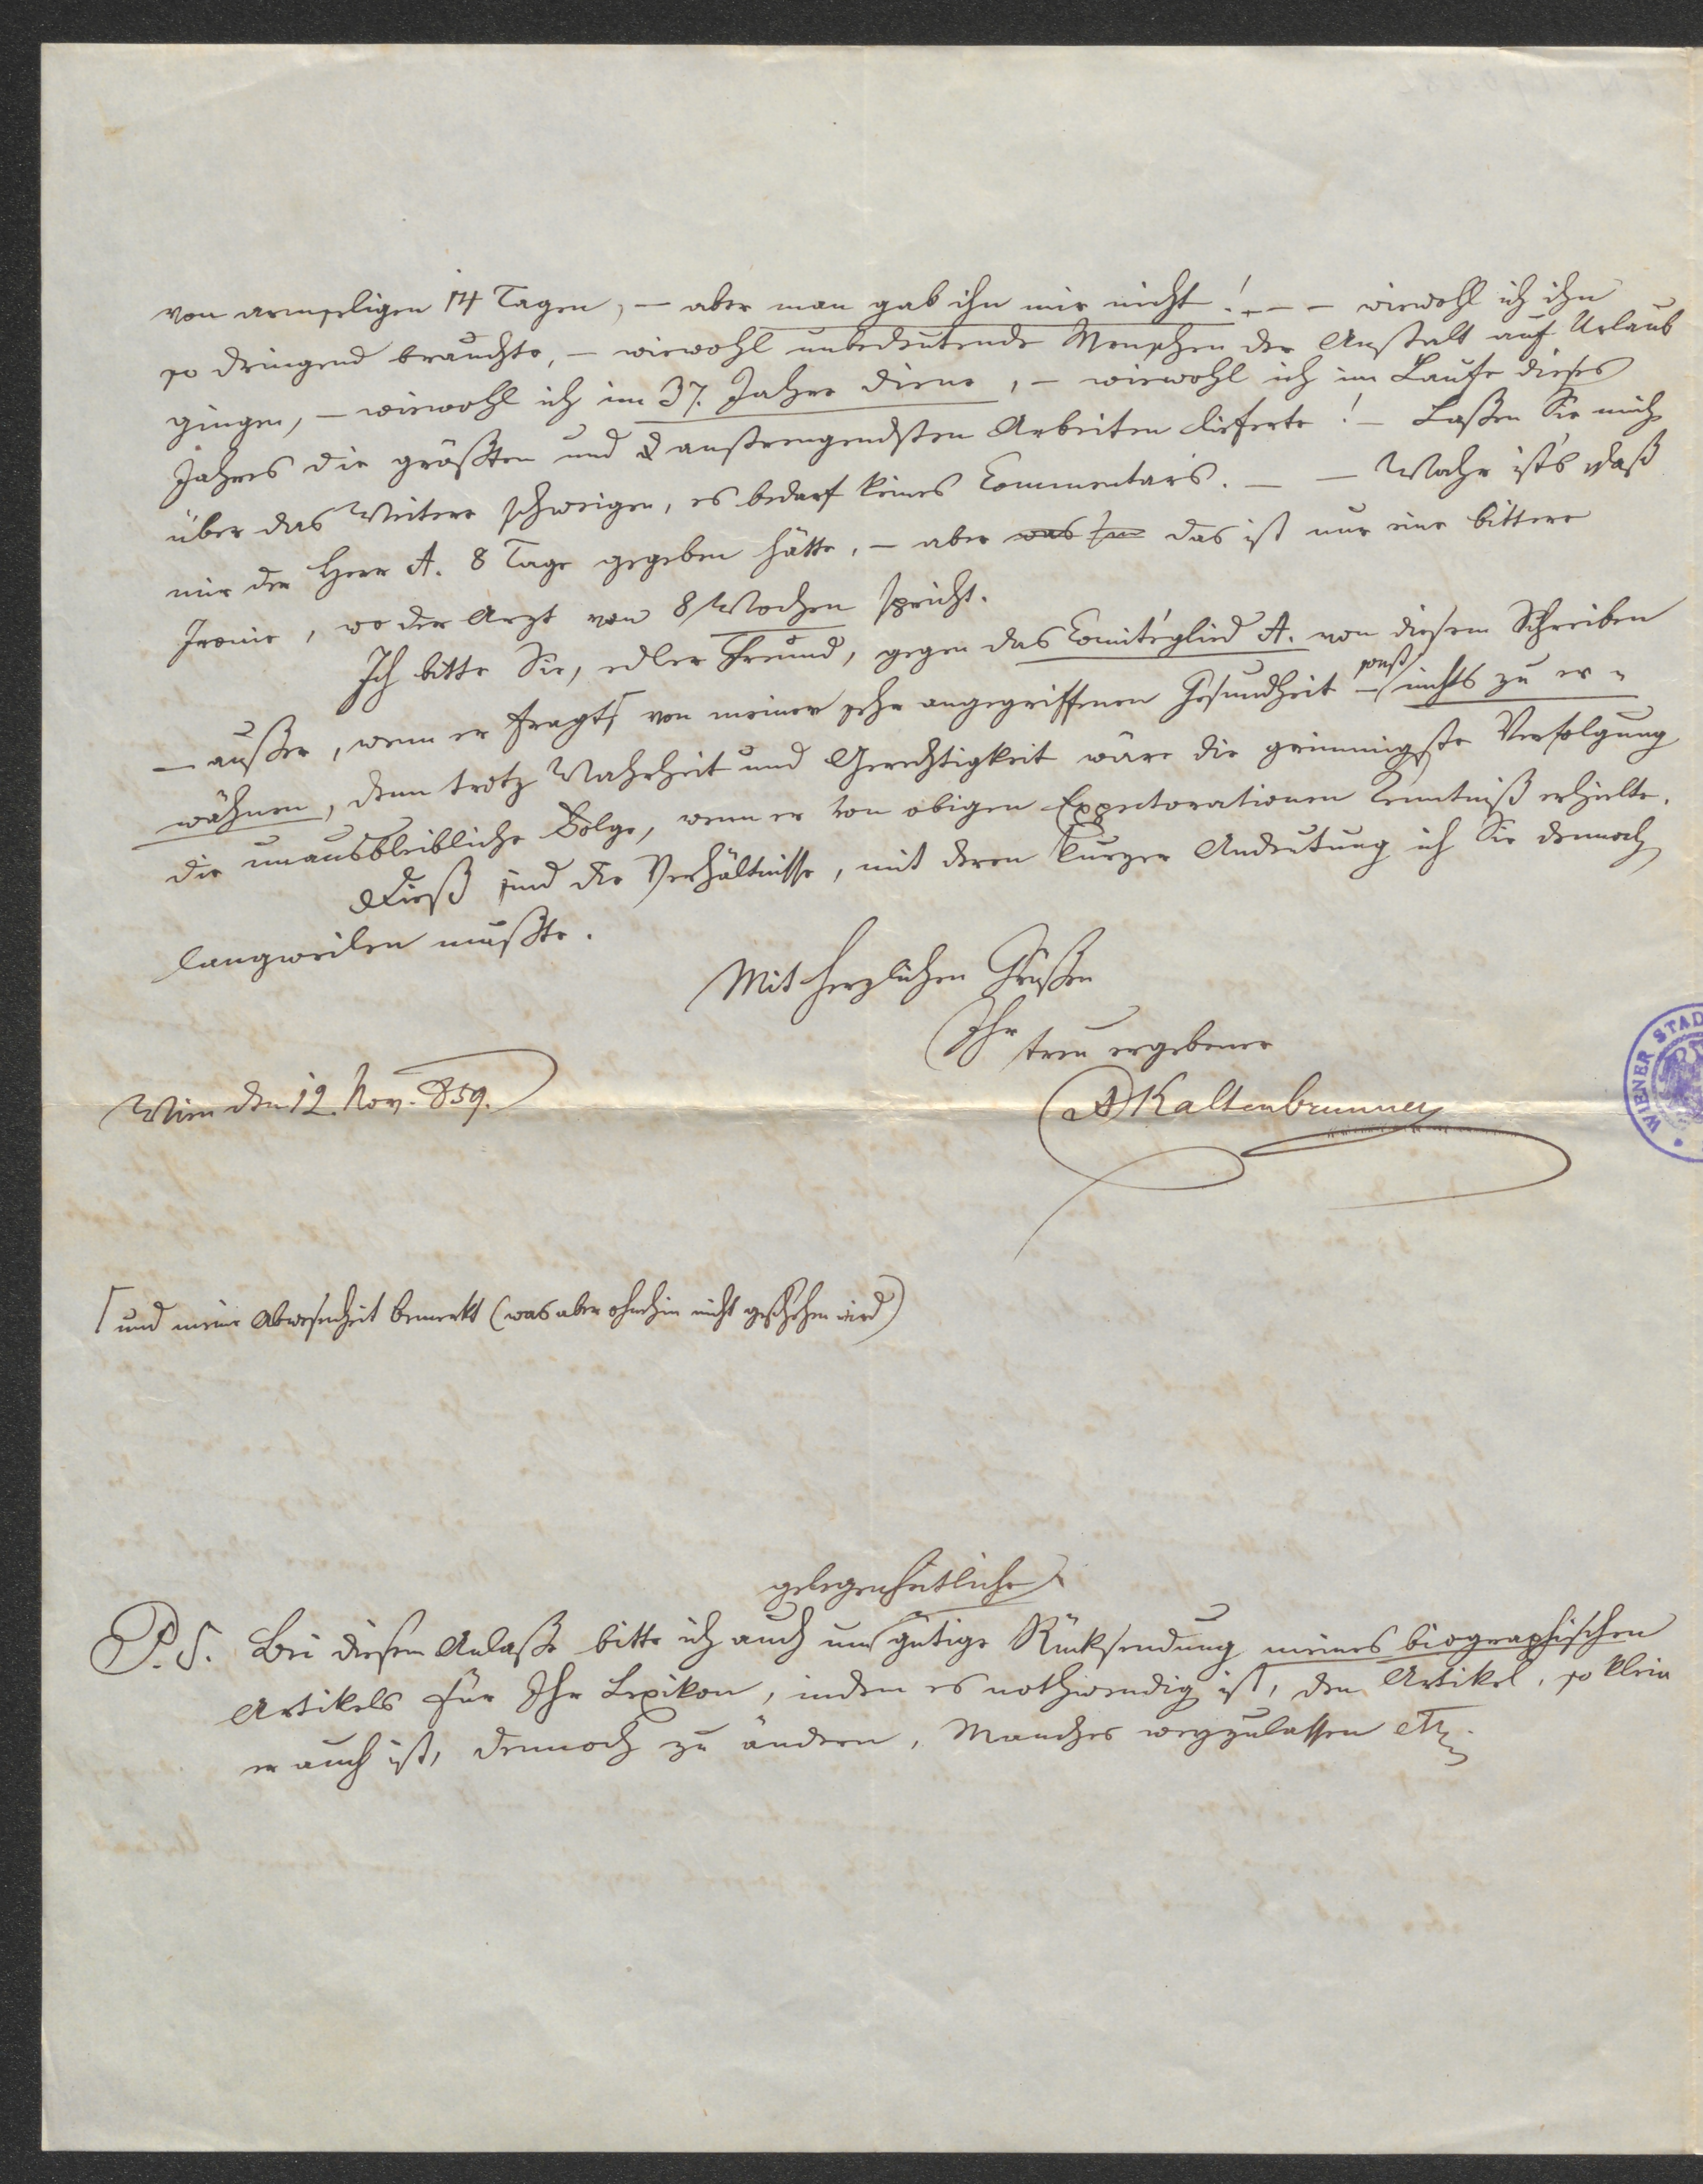 von armseligen 14 Tagen, – aber man gab ihn mir nicht! – – wiewohl ich ihn
so dringend brauchte, – wiewohl unbedeutende Menschen der Anstalt auf Urlaub
gingen, – wiewohl ich im 37. Jahre diene, – wiewohl ich im Laufe dieses
Jahres die größten und anstrengendsten Arbeiten lieferte! – Laßen Sie mich
über das Weitere schweigen, es bedarf keines Commentars. – – Wahr ist's daß
mir der Herr A. 8 Tage gegeben hätte, – aber was das ist nur eine bittere
Ironie, wo der Arzt von 8 Wochen spricht.
Ich bitte Sie, edler Freund, gegen das Comitéglied A. von diesem Schreiben
– außer, wenn er fragt⌈ von meiner sehr angegriffenen Gesundheit – sonst nichts zu er-
wähnen, denn trotz Wahrheit und Gerechtigkeit wäre die grimmigste Verfolgung
die unausbleibliche Folge, wenn er von obigen Expectorationen Kenntniß erhielte.
Dieß sind die Verhältnisse, mit deren kurzer Andeutung ich Sie dennoch
langweilen mußte.
Mit herzlichen Grüßen
Ihr treu ergebener
Wien den 12. Nov. 859.
A Kaltenbrunner
⌈und meine Abwesenheit bemerkt (was aber ohnehin nicht geschehen wird)
gelegenheitliche
P.S. Bei diesem Anlaße bitte ich auch um gütige Rücksendung meines biographischen
Artikels für Ihr Lexikon, indem es nothwendig ist, den Artikel, so klein
er auch ist, dennoch zu ändern, Manches wegzulassen etc.
WIENER STAD